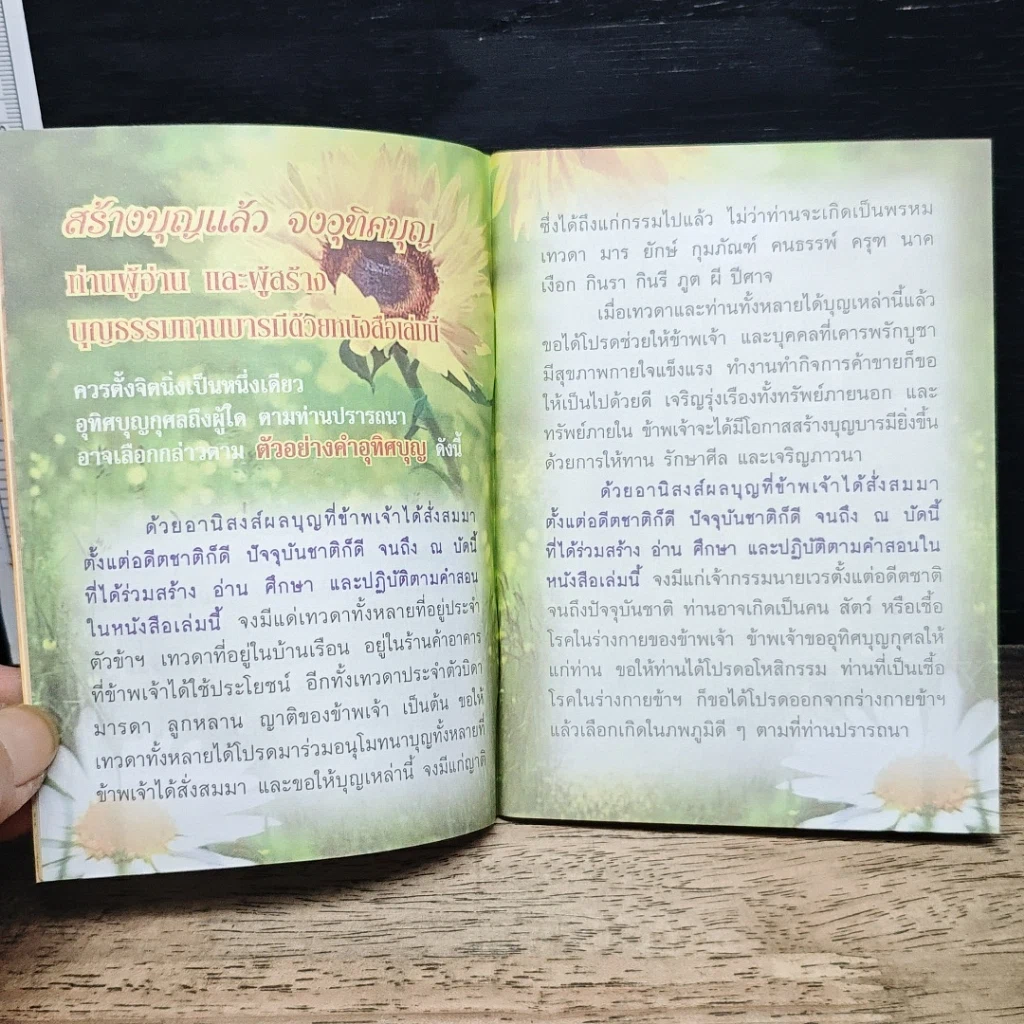 สร้างบุญแล้ว จงอุทิศบุญ
ท่านผู้อ่าน และผู้สร้าง
บุญธรรมทานบารมีด้วยหนังสือเล่มนี้
ควรตั้งจิตนิ่งเป็นหนึ่งเดียว
อุทิศบุญกุศลถึงผู้ใด ตามท่านปรารถนา
อาจเลือกกล่าวตาม ตัวอย่างคำอุทิศบุญ ดังนี้
ด้วยอานิสงส์ผลบุญที่ข้าพเจ้าได้สั่งสมมา
ตั้งแต่อดีตชาติก็ดี ปัจจุบันชาติก็ดี จนถึง ณ บัดนี้
ที่ได้ร่วมสร้าง อ่าน ศึกษา และปฏิบัติตามคำสอน
ในหนังสือเล่มนี้ จงมีแด่เทวดาทั้งหลายที่อยู่ประจำ
ตัวข้าฯ เทวดาที่อยู่ในบ้านเรือน อยู่ในร้านค้าอาคาร
ที่ข้าพเจ้าได้ใช้ประโยชน์ อีกทั้งเทวดาประจำตัวบิดา
มารดา ลูกหลาน ญาติของข้าพเจ้า เป็นต้น ขอให้
เทวดาทั้งหลายได้โปรดมาร่วมอนุโมทนาบุญทั้งหลายที่
ข้าพเจ้าได้สั่งสมมา และขอให้บุญเหล่านี้ จงมีแก่ญาติ
ซึ่งได้ถึงแก่กรรมไปแล้ว ไม่ว่าท่านจะเกิดเป็นพรหม
เทวดา มาร ยักษ์ กุมภัณฑ์ คนธรรพ์ ครุฑ นาค
เงือก กินรา กินรี ภูต ผี ปีศาจ
เมื่อเทวดาและท่านทั้งหลายได้บุญเหล่านี้แล้ว
ขอได้โปรดช่วยให้ข้าพเจ้า และบุคคลที่เคารพรักบูชา
มีสุขภาพกายใจแข็งแรง ทำงานทำกิจการค้าขายก็ขอ
ให้เป็นไปด้วยดี เจริญรุ่งเรืองทั้งทรัพย์ภายนอก และ
ทรัพย์ภายใน ข้าพเจ้าจะได้มีโอกาสสร้างบุญบารมียิ่งขึ้น
ด้วยการให้ทาน รักษาศีล และเจริญภาวนา
ด้วยอานิสงส์ผลบุญที่ข้าพเจ้าได้สั่งสมมา
ตั้งแต่อดีตชาติก็ดี ปัจจุบันชาติก็ดี จนถึง ณ บัดนี้
ที่ได้ร่วมสร้าง อ่าน ศึกษา และปฏิบัติตามคำสอนใน
หนังสือเล่มนี้ จงมีแก่เจ้ากรรมนายเวรตั้งแต่อดีตชาติ
จนถึงปัจจุบันชาติ ท่านอาจเกิดเป็นคน สัตว์ หรือเชื้อ
โรคในร่างกายของข้าพเจ้า ข้าพเจ้าขออุทิศบุญกุศลให้
แก่ท่าน ขอให้ท่านได้โปรดอโหสิกรรม ท่านที่เป็นเชื้อ
โรคในร่างกายข้าฯ ก็ขอได้โปรดออกจากร่างกายข้าฯ
แล้วเลือกเกิดในภพภูมิดี ๆ ตามที่ท่านปรารถนา